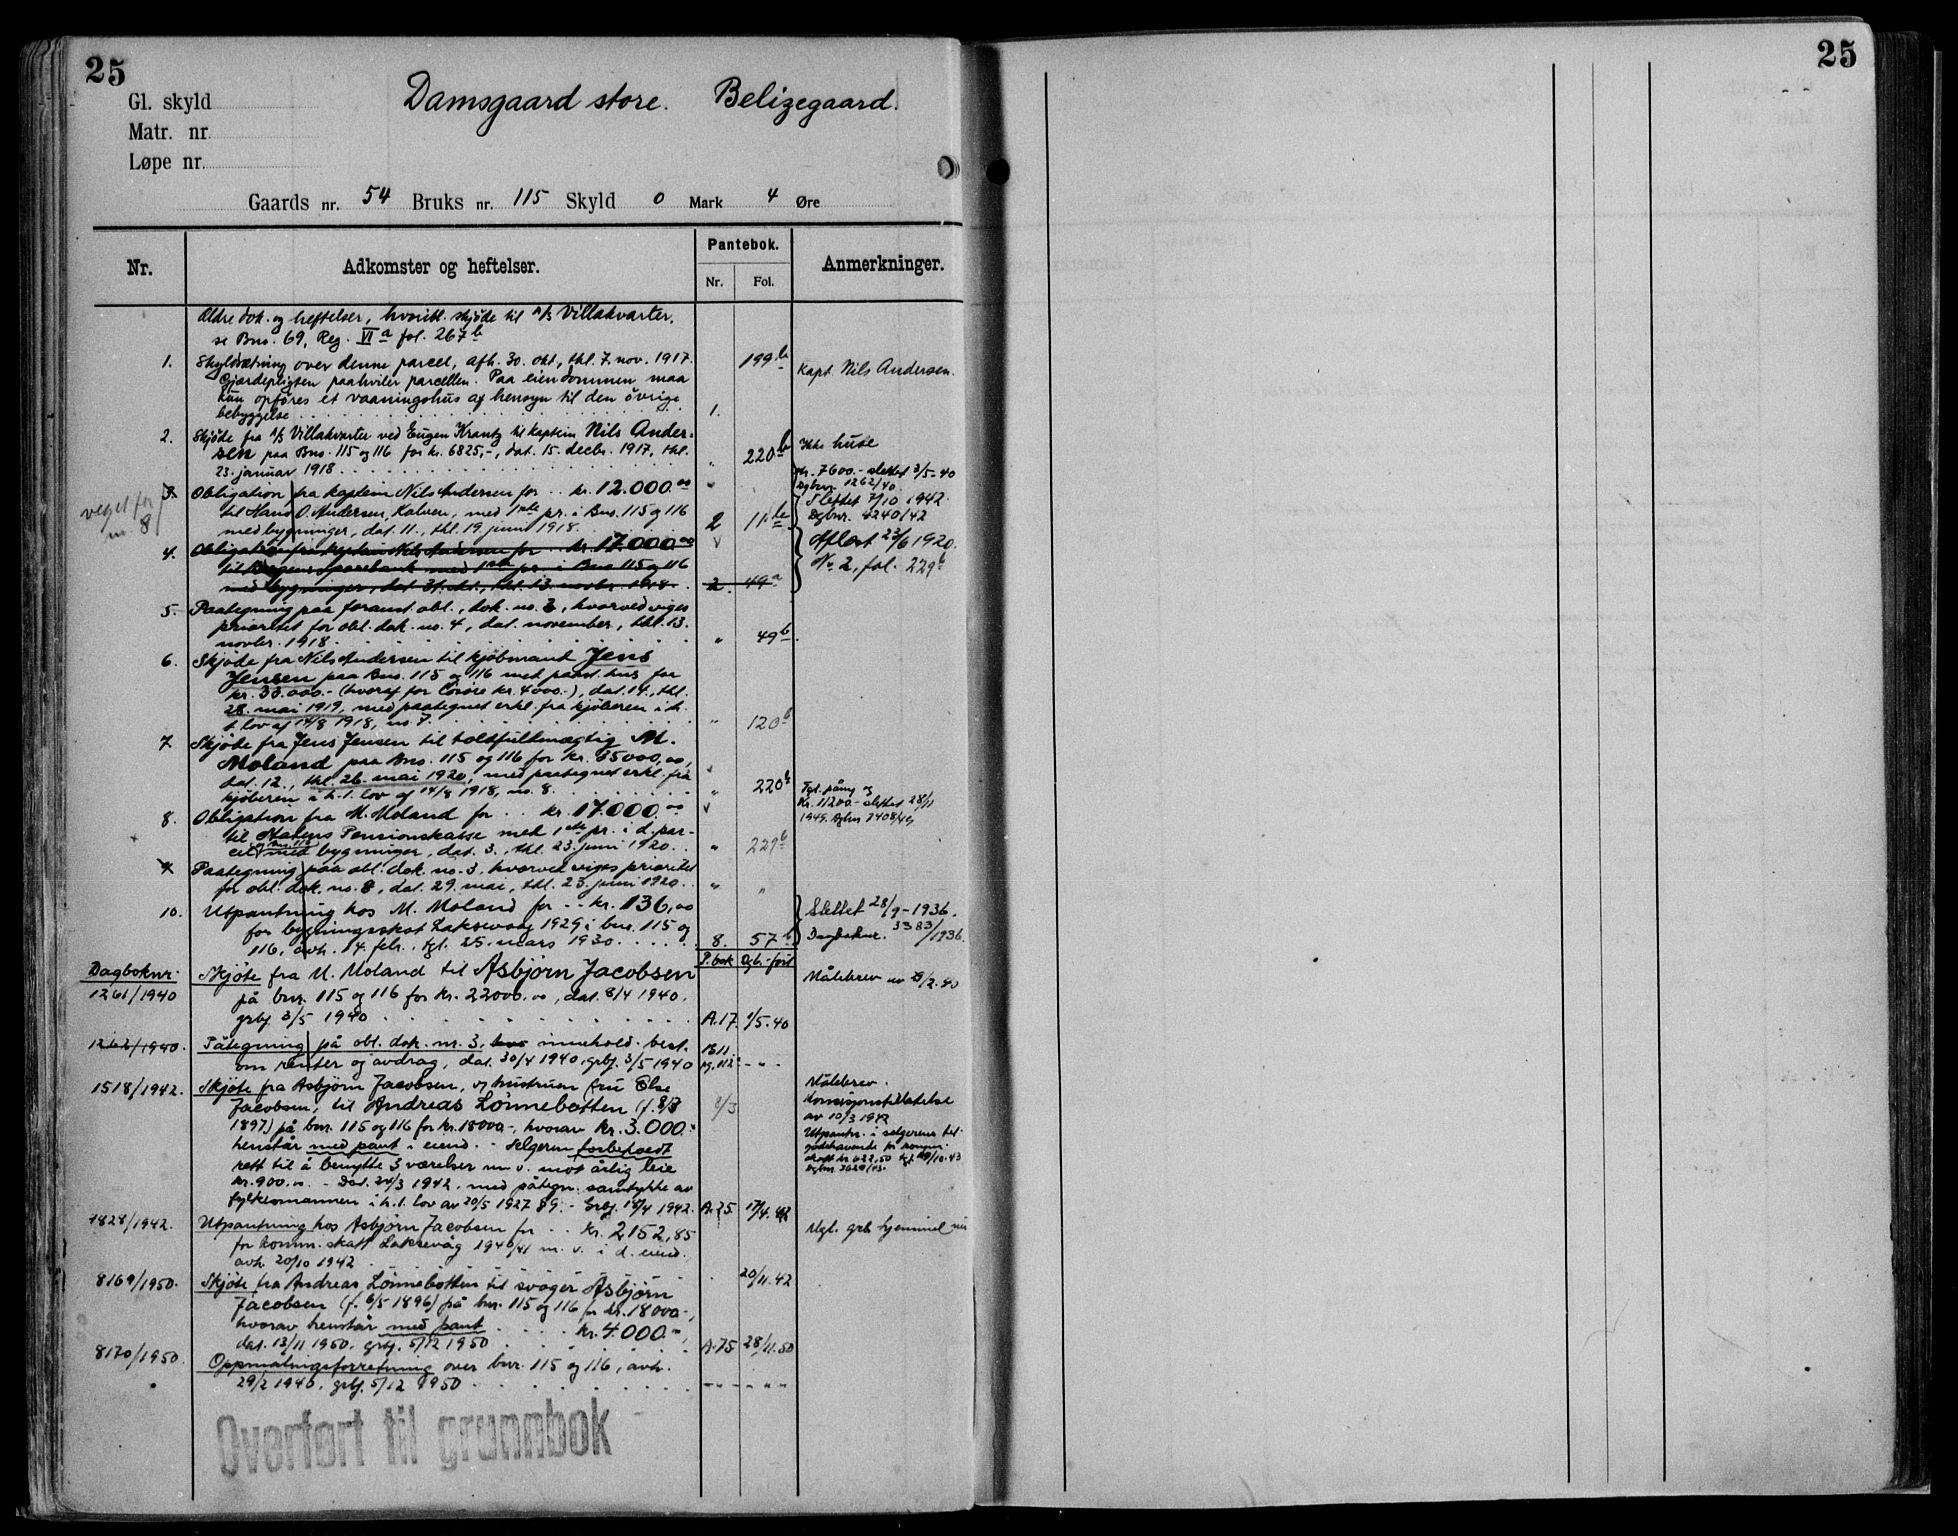 25
25
Gl. skyld
Matr. nr.
Løpe nr.
Damsgaard store. Belizegaard.
Gaards nr. 54 Bruks nr. 115 Skyld 0 Mark 4 Øre
Nr. Adkomster og heftelser. Pantebok. Anmerkninger.
Nr. Fol.
Ældre dok. og heftelser, hvoribl. skjøde til A/S Villakvarter,
se Bno. 69, Reg. VI a fol. 267 b
1. Skyldsætning over denne parcel, afh. 30. okt., thl. 7. nov. 1917. 199 b Kapt. Nils Andersen.
Gjærdepligten paahviler parcellen. Paa eiendommen maa
kun opføres et vaaningshus af hensyn til den øvrige
bebyggelse 1.
2. Skjøde fra A/S Villakvarter ved Eugen Krantz til kaptein Nils Ander-
sen paa Bno. 115 og 116 for kr. 6825,-, dat. 15. decbr. 1917, thl. " 220 b Ikke huse
23. januar 1918
veget for nr 8
3. Obligation fra kaptein Nils Andersen for .. kr. 12.000.00 " kr. 7600.- slettet 3/5-40
Dgbnr. 1262/40
til Hans O. Andersen, Kalven, med 1ste pr. i Bno. 115 og 116 Slettet 7/10 1942
med bygninger, dat. 11., thl. 19. juni 1918. 2 11 b Dgbnr. 4240/42
4. Obligation fra kaptein Nils Andersen for .. kr. 17.000.00 Aflæst 23/6 1920.
til Bergens Sparebank med 1ste pr. i Bno 115 og 116 No. 2, fol. 229 b
med bygninger, dat. 31. okt., thl. 13. novbr. 1918. 2. 49 a
5. Paategning paa foranst. obl., dok. no. 3, hvorved viges
prioritet for obl. dok. no. 4, dat. november, thl. 13.
novbr. 1918 " 49 b
6. Skjøde fra Nils Andersen til kjøbmand Jens
Jensen paa Bno. 115 og 116 med paast. hus for
kr. 33.000.- (hvoraf for løsøre kr. 4000.-), dat. 14., thl.
28. mai 1919, med paategnet erkl. fra kjøberen i h.
t. lov af 14/8 1918, no 7. " 120 b
7. Skjøde fra Jens Jensen til toldfuldmægtig M.
Moland paa Bno. 115 og 116 for kr. 35000,00,
dat. 12., thl. 26. mai 1920, med paategnet erkl. fra
kjøberen i h. t. lov af 14/8 1918, no. 8. " 220 b
8. Obligation fra M. Moland for .. kr. 17.000.00 Tgl. påny og
kr. 11200.- slettet 28/11
1949. Dgbnr 7408/49
til Statens Pensionskasse med 1ste pr. i d. par-
cel og Bno. 116 med bygninger, dat. 3., thl. 23. juni 1920. " 229 b
9. Paategning paa obl. dok. no. 3, hvorved viges prioritet
for obl. dok. no. 8, dat. 29. mai, thl. 23. juni 1920. " "
10. Utpantning hos M. Moland for -- kr. 136,00 Slettet 28/9-1936.
for bygningsskat Laksevaag 1929 i bno. 115 og Dagboknr. 3383/1936.
116, avh. 14. febr., tgl. 25. mars 1930. 8. 57 b
P. bok Dgb.-ført
Dagboknr.
1261/1940 Skjøte fra M. Moland til Asbjørn Jacobsen Målebrev av 29/2.40
på bnr. 115 og 116 for kr. 22000.00, dat. 8/4 1940.
grbf. 3/5 1940 A.17. 1/5.40
1262/1940. Påtegning på obl. dok. nr. 3, innehold. best. B 11
om renter og avdrag, dat. 30/4 1940, grbf. 3/5 1940 pg. 112 - " -
1518/1942. Skjøte fra Asbjørn Jacobsen, og hustruen fru Else Målebrev.
Jacobsen, til Andreas Lönnebotten (f. 8/3 Konsesjonstillatelse
1897) på bnr. 115 og 116 for kr. 18000.-, hvorav kr. 3.000.- av 10/3 1942
henstår med pant i eiend. - Selgeren forbeholdt Utpantn. i selgerens til-
godehavende for komm.
rett til å benytte 3 værelser m.v. mot årlig leie skatt kr. 622,50 tgl. 19/10.43
kr. 900.00. - Dat. 24/3 1942, med påtegn. samtykke av Dgbnr 3629/43.
fylkesmannen i h. t. lov av 20/5 1927 § 9. - Grbf. 18/4 1942. A.25. 17/4.42
4828/1942. Utpantning hos Asbjørn Jacobsen for .. kr. 2152,85 Mgl. grb. hjemmel
for komm. skatt Laksevåg 1940/41 m. v. i d. eiend.
avh. 20/10 1942 20/11.42
8169/1950. Skjøte fra Andreas Lönnebotten til svoger Asbjørn
Jacobsen (f. 6/5 1896) på bnr. 115 og 116 for kr. 18000.-,
hvorav henstår med pant kr. 4.000.-,
dat. 13/11 1950, grbf. 5/12 1950 A.75 28/11.50
8170/1950. Oppmålingsforretning over bnr. 115 og 116, avh.
29/2 1940, grbf. 5/12 1950
Overført til grunnbok